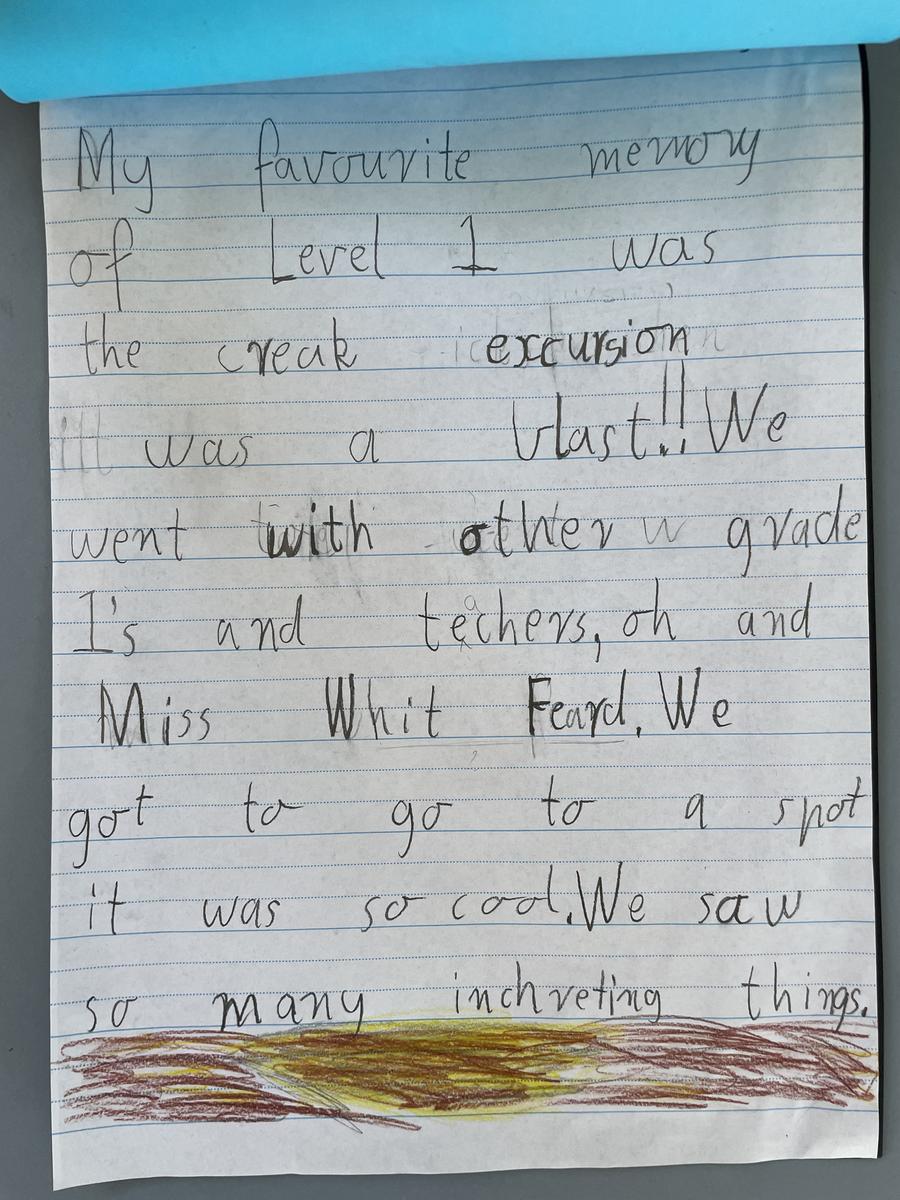 My favourite memory
of Level 1 was
the creak excursion
itt was a blast!! We
went with other grade
1's and teachers, oh and
Miss Whit Feard. We
got to go to a spot
it was so cool. We saw
so many inchreting things.